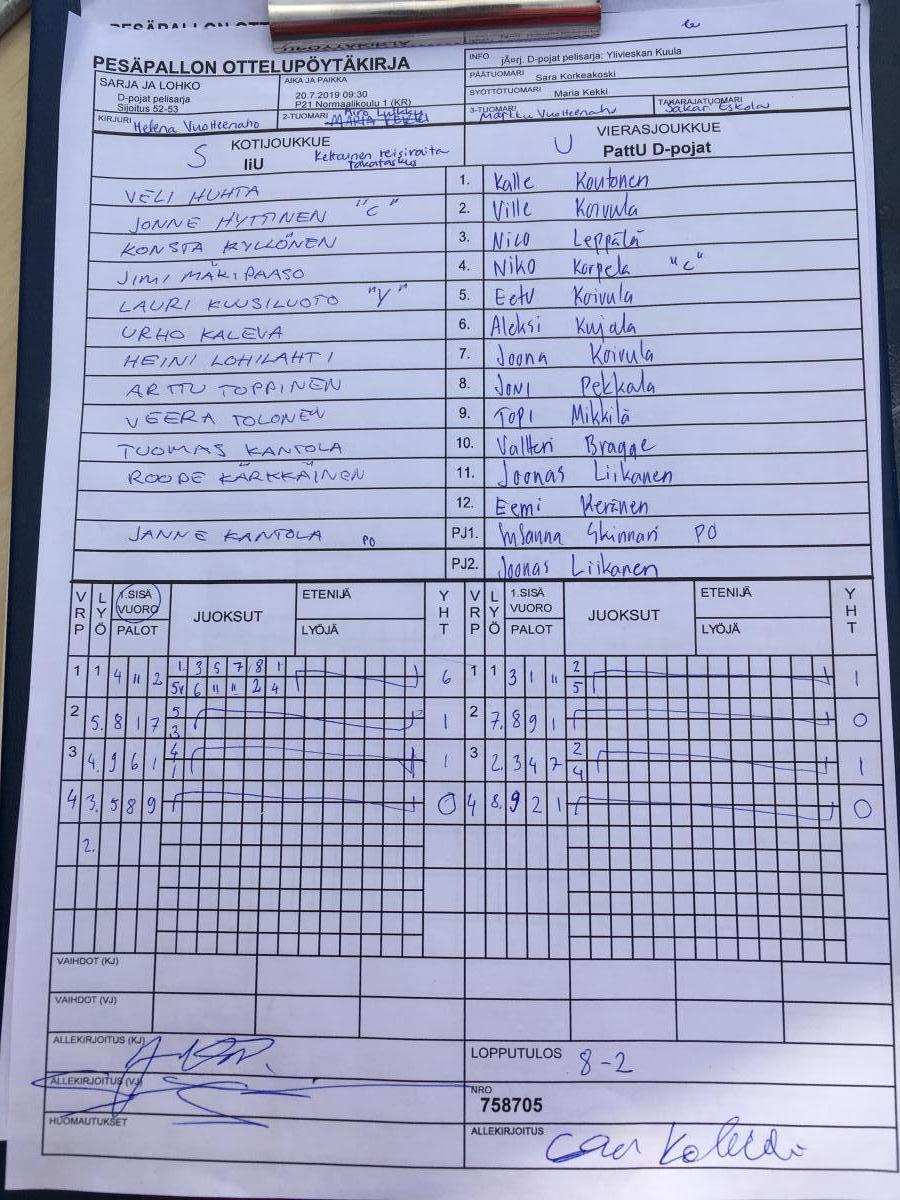 PESÄPALLON OTTELUPÖYTÄKIRJA
INFO jÄ¤rj. D-pojat pelisarja: Ylivieskan Kuula
SARJA JA LOHKO
D-pojat pelisarja
Sijoitus 52-53
AIKA JA PAIKKA
20.7.2019 09:30
P21 Normaalikoulu 1 (KR)
PÄÄTUOMARI Sara Korkeakoski
SYÖTTÖTUOMARI Maria Kekki
KIRJURI Helena Vuotteenaho
2-TUOMARI
3-TUOMARI Markku Vuotteenaho
TAKARAJATUOMARI Jakari Eskola
S KOTIJOUKKUE
IiU Keltainen reisiraita takataskus
U VIERASJOUKKUE
PattU D-pojat
VELI HUHTA 1. Kalle Koutonen
JONNE HYTTINEN "C" 2. Ville Koivula
KONSTA KYLLÖNEN 3. Nico Leppälä
JIMI MÄKIPAASO 4. Niko Korpela "C"
LAURI KUUSILUOTO "V" 5. Eetu Koivula
URHO KALEVA 6. Aleksi Kujala
HEINI LOHILAHTI 7. Joona Koivula
ARTTU TOPPINEN 8. JONI Pekkala
VEERA TOLONEN 9. TOPI Mikkilä
TUOMAS KANTOLA 10. Valtteri Bragge
ROOPE KÄRKKÄINEN 11. Joonas Liikanen
12. Eemi Keränen
JANNE KANTOLA PO PJ1. Susanna Skinnari PO
PJ2. Joonas Liikanen
VRP LYÖ 1.SISÄ VUORO PALOT JUOKSUT ETENIJÄ LYÖJÄ YHT VRP LYÖ 1.SISÄ VUORO PALOT JUOKSUT ETENIJÄ LYÖJÄ YHT
1 1 4 11 2 1. 3 5 7 8 1 6 1 1 3 1 11 2 1
6 11 11 2 4 5
2 5. 8 1 7 5 1 2 7. 8 9 1 0
3
3 4. 9 6 1 4 1 3 2. 3 4 7 2 1
1 4
4 3. 5 8 9 0 4 8. 9 2 1 0
2.
VAIHDOT (KJ)
VAIHDOT (VJ)
ALLEKIRJOITUS (KJ)
LOPPUTULOS 8-2
ALLEKIRJOITUS (VJ)
NRO
758705
HUOMAUTUKSET
ALLEKIRJOITUS